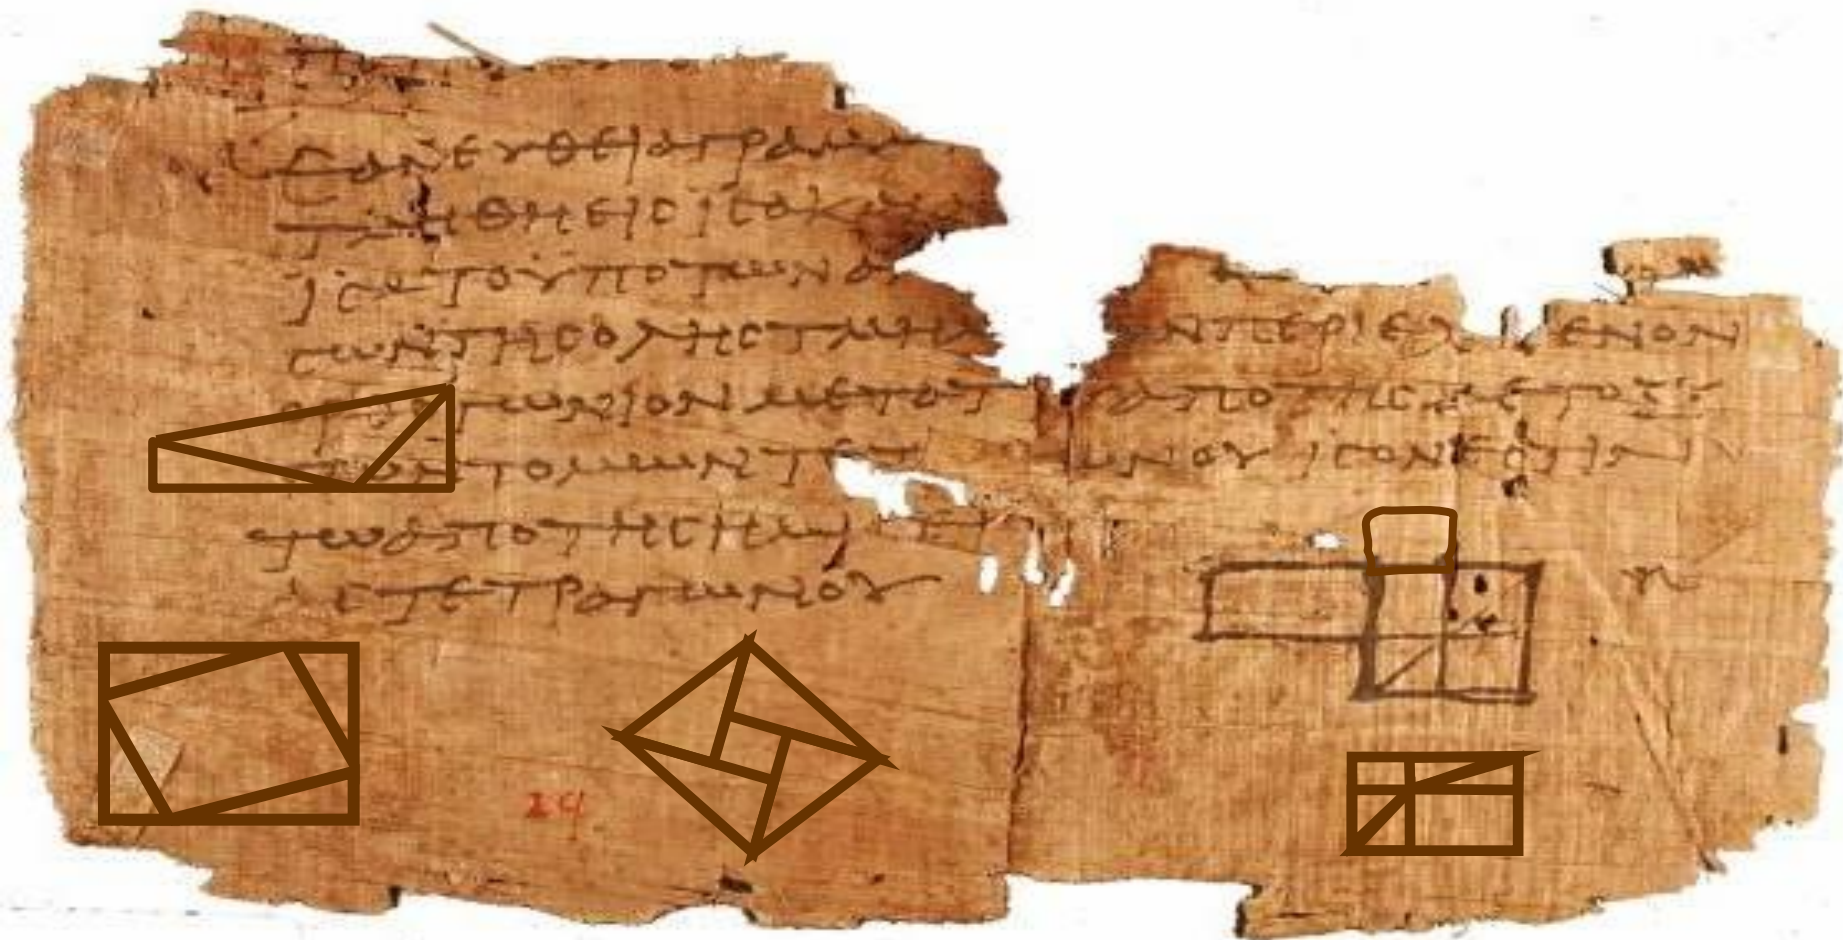 ΕΑΝ ΕΥΘΕΙΑ ΓΡΑΜΜ
ΤΜΗΘΗ ΕΙϹ ΙϹΑ Κ
ΙϹΑ ΤΟ ΥΠΟ ΤΩΝ Α
ϹΩΝ ΤΗϹ ΟΛΗϹ ΤΜΗ Ν ΠΕΡΙΕΧ ΜΕΝΟΝ
ΓΩΝΙΟΝ ΜΕΤΑ ΤΟΥ ΑΠΟ ΤΗϹ ΜΕΤΟΞΥ
ΤΩΝ ΤΟΜΩΝ ΤΕΤ ΩΝΟΥ ΙϹΟΝ ΕϹΤΙΝ
ΤΩ ΑΠΟ ΤΗϹ ΗΜΙ
ΤΕΤΡΑΓΩΝΟΥ
29